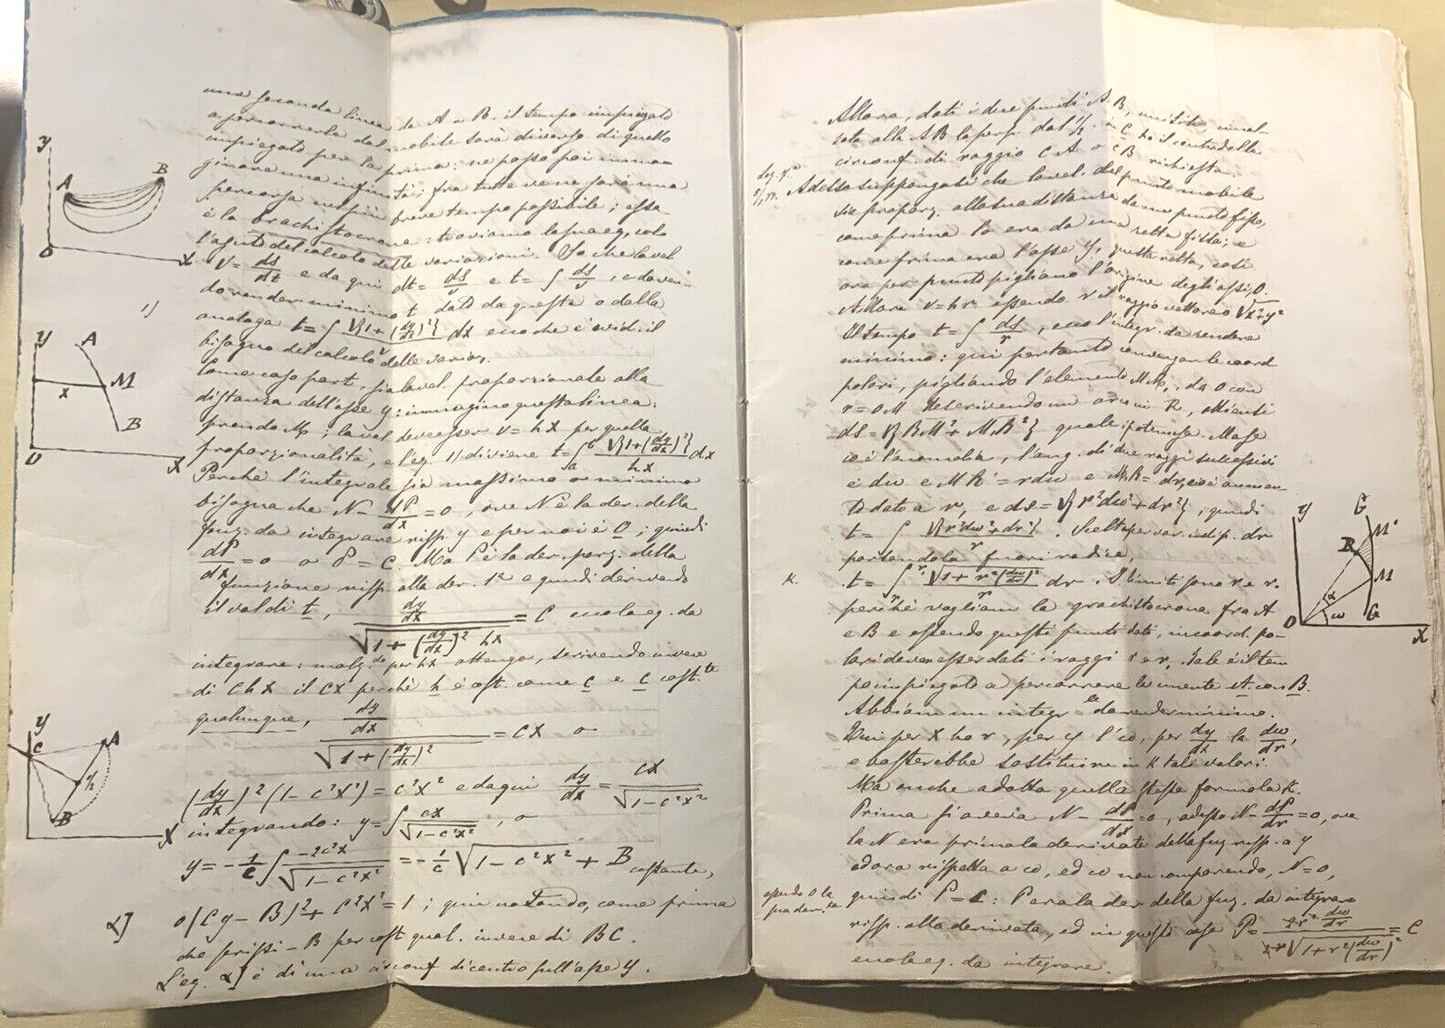 una seconda linea da A a B. il tempo impiegato
a percorrerla dal mobile sarà diverso di quello
impiegato per la prima: ne posso poi imma-
ginare una infinità; fra tutte ve ne sarà una
percorsa in più breve tempo possibile; essa
è la brachistocrona: troviamo la sua eq. colo
l'ajuto del calcolo delle variazioni. So che la vel
V = ds/dt e da qui dt = ds/v e t = ∫ ds/v, e doven-
do render minimo t dato da questa o dalla
1) analoga t = ∫ √{1+(dy/dx)²}/v dx ecco che è evid. il
bisogno del calcolo delle variaz.
Come caso part. sia la vel. proporzionale alla
distanza dell'asse y: immagino questa linea:
prendo M; la vel deve esser v = hx per quella
proporzionalità, e l'eq. 1) diviene t = ∫ₐᵇ √{1+(dy/dx)²}/hx dx
Perchè l'integrale sia massimo o minimo
bisogna che N - dP/dx = 0, ove N è la der. della
funz. da integrare risp. y e per noi è 0; quindi
dP/dx = 0 o P = C. Ma P è la der. parz. della
funzione risp. alla der. 1ª e quindi derivando
il val di t, dy/dx / √1+(dy/dx)² hx = C ecco la eq. da
integrare: molt.do per hx ottengo, scrivendo invece
di Chx il cx perchè h è cost. come c e c cost.te
qualunque, dy/dx / √1+(dy/dx)² = cx o
(dy/dx)² (1-c²x²) = c²x² e da qui dy/dx = cx/√1-c²x²
integrando: y = ∫ cx/√1-c²x², o
y = -1/c ∫ -2c²x/√1-c²x² = -1/c √1-c²x² + B costante,
2) o (cy-B)² + c²x² = 1; qui notando, come prima
che scrissi -B per cost qual. invece di BC.
L'eq. 2) è di una circonf di centro sull'asse y.
y
A
B
O
x
y
A
M
x
B
O
x
y
C
A
h
B
x
Allora, dati i due punti A, B,
alla AB la perp. dal 1/2. in C ho il centro della
circonf. di raggio CA o CB richiesta.
Adesso suppongasi che la vel. del punto mobile
sia proporz. alla sua distanza da un punto fisso,
come prima lo era da una retta fissa; e
come prima era l'asse y, questa retta, così
ora per punto pigliamo l'origine degli assi, O.
Allora v = hr essendo r il raggio vettore o √x²+y²
Il tempo t = ∫ ds/r, ecco l'integr. da rendere
minimo: qui pertanto convengon le coord
polari, pigliando l'elemento MM₁, da O con
r = OM descrivendo un arco in R, ottiensi
ds = √{RM²+MR²} quale ipotenusa. Ma se
ω è l'anomalia, l'ang. di due raggi successivi
è dω e MR = rdω e MR = dr, cioè aumen-
to dato a r, e ds = √{r²dω²+dr²}, quindi
t = ∫ √{r²dω²+dr²}/r. Scelta per var. indip. dr
portandola fuori radice,
K. t = ∫ √1+r²(dω/dr)²/r dr. I limiti sono r e r₁
perchè vogliam la brachistocrona fra A
e B e essendo questi punti dati, in coord. po-
lari devon esser dati i raggi r e r₁. Tale è il tem
po impiegato a percorrere la linea A con B.
Abbiam un integr.le da render minimo.
Qui per x ho r, per y l'ω, per dy/dx la dω/dr,
e basterebbe sostituire in K tali valori.
Ma anche adotto quella stessa formola K.
Prima si aveva N - dP/dx = 0, adesso N - dP/dr = 0, ove
la N era prima la derivata della fuz risp. a y
ed ora rispetto a ω, ed ω non comparendo, N = 0,
essendo 0 la
sua der.ta
quindi P = C: P era la der della fuz. da integrare
risp. alla derivata, ed in questo caso P = 2r² dω/dr / 2r√1+r²(dω/dr)² = C
ecco la eq. da integrare.
y
G
M'
R
M
α
ω
G
O
x